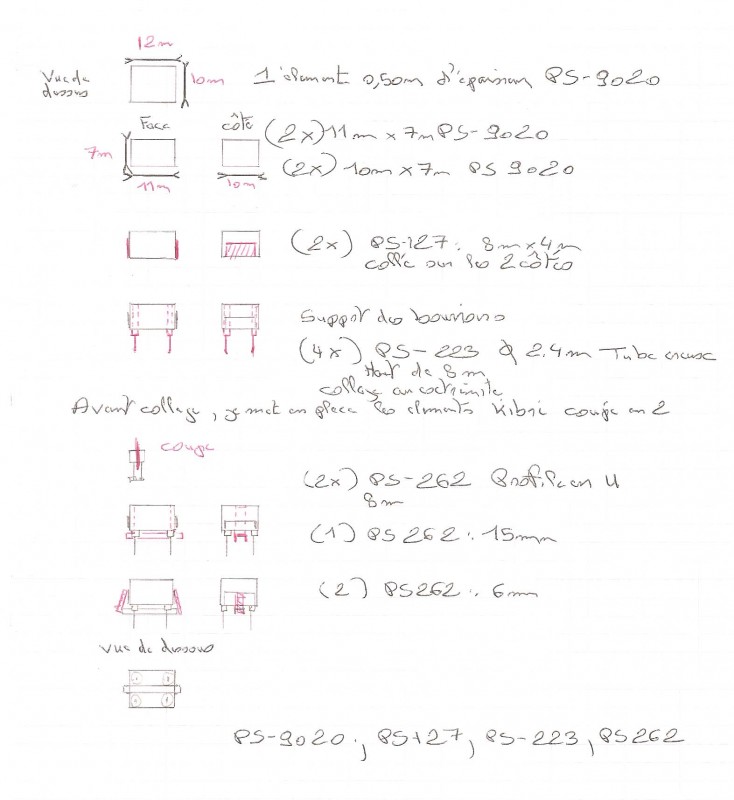 12m
Vue de
dessus
10m
1 élement 0,50m d'épaisseur PS-9020
Face
côté
(2x) 11m x 7m PS-9020
7m
11m
10m
(2x) 10m x 7m PS 9020
(2x) PS-127. 8m x 4m
collé sur les 2 côtés
Support des
(4x) PS-223 2.4m Tube creux
Haut de 8m
collage
Avant collage, je met en place les elements Kibri coupé en 2
coupe
(2x) PS-262 Profilé en U
8m
(1) PS262. 15mm
(2) PS262. 6mm
Vue de dessous
PS-9020., PS127, PS-223, PS262